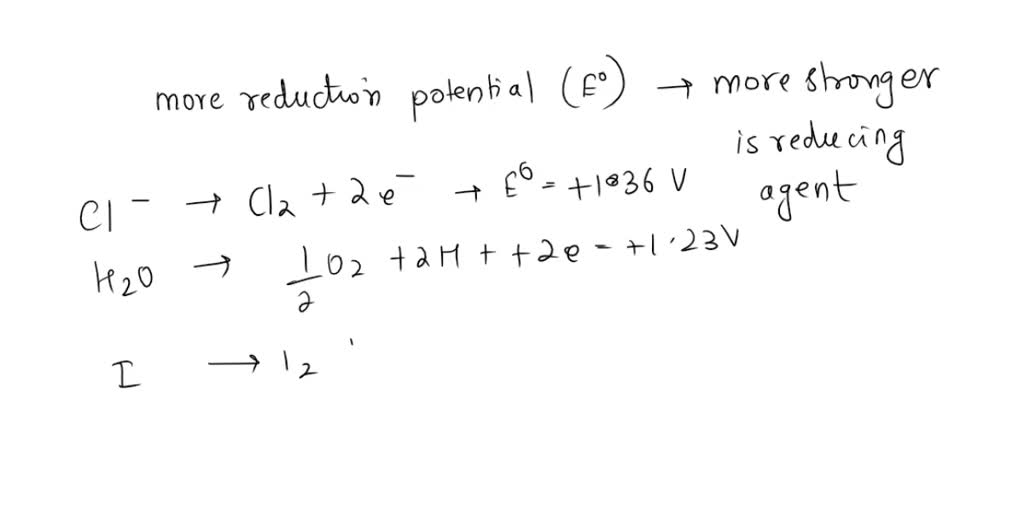 more reduction potential (E°) → more stronger
is reducing
agent
Cl⁻ → Cl2 + 2e⁻ → E° = +1.36 V
H2O → 1/2 O2 + 2H + + 2e = +1.23V
I → I2